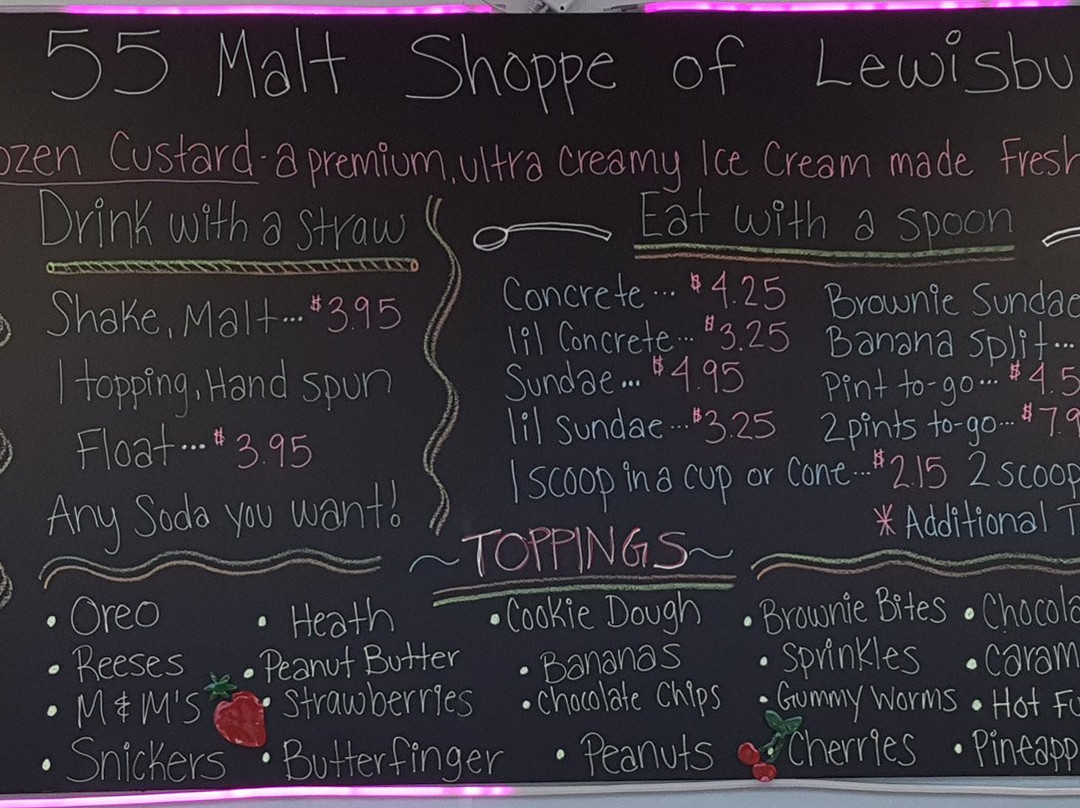 55 Malt Shoppe of Lewisbu
ozen Custard - a premium, ultra creamy Ice Cream made Fresh
Drink with a straw
Shake, Malt... $3.95
1 topping, Hand spun
Float... $3.95
Any Soda you want!
Eat with a spoon
Concrete... $4.25
lil Concrete... $3.25
Sundae... $4.95
lil Sundae... $3.25
Brownie Sundae
Banana Split...
Pint to-go... $4.5
2 pints to-go... $7.9
1 scoop in a cup or cone... $2.15 2 scoop
* Additional T
~TOPPINGS~
• Oreo
• Reeses
• M & M's
• Snickers
• Heath
• Peanut Butter
• Strawberries
• Butterfinger
• Cookie Dough
• Bananas
• Chocolate Chips
• Peanuts
• Brownie Bites
• Sprinkles
• Gummy Worms
• Cherries
• Chocola
• Caram
• Hot Fu
• Pineapp